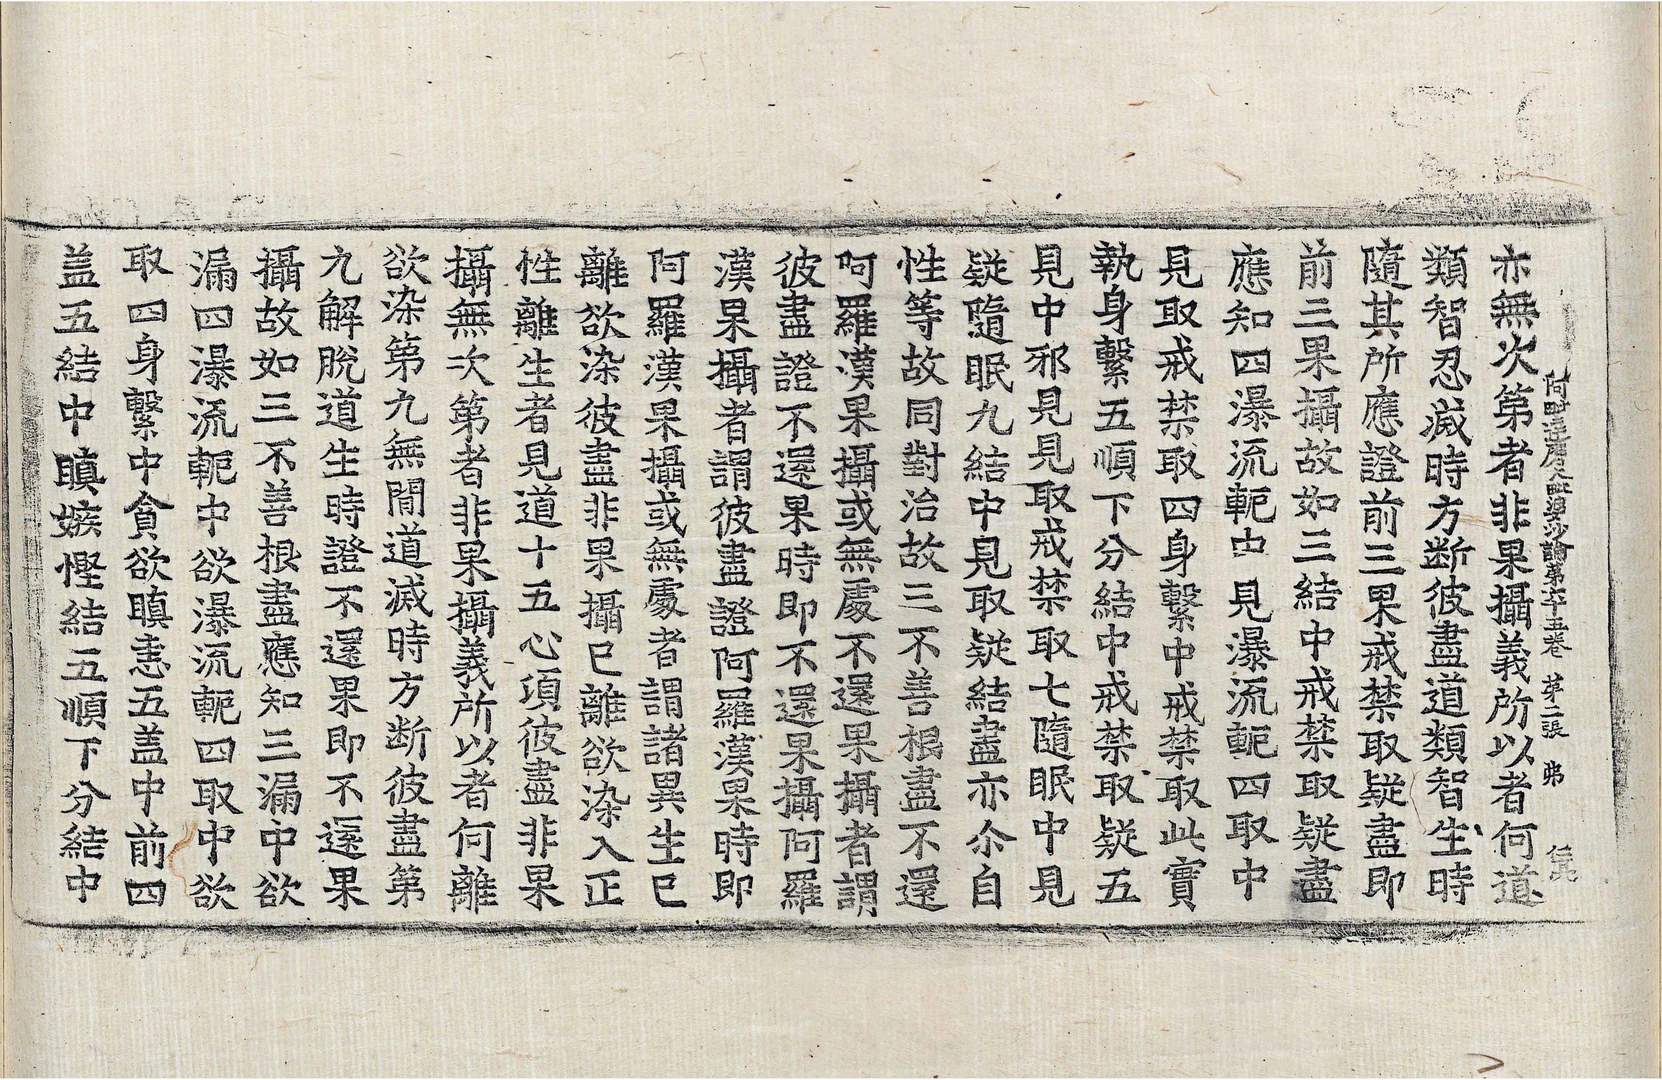 阿毗達磨大毗婆沙論第六十五卷　第二張　弗
亦無次第者非果攝義所以者何道
類智忍滅時方断彼盡道類智生時
隨其所應證前三果戒禁取疑盡即
前三果攝故如三結中戒禁取疑盡
應知四瀑流軛中見瀑流軛四取中
見取戒禁取四身繫中戒禁取此實
執身繫五順下分結中戒禁取疑五
見中邪見見取戒禁取七隨眠中見
疑隨眠九結中見取疑結盡亦尒自
性等故同對治故三不善根盡不還
阿羅漢果攝或無處不還果攝者謂
彼盡證不還果時即不還果攝阿羅
漢果攝者謂彼盡證阿羅漢果時即
阿羅漢果攝或無處者謂諸異生已
離欲染彼盡非果攝已離欲染入正
性離生者見道十五心頃彼盡非果
攝無次第者非果攝義所以者何離
欲染第九無閒道滅時方断彼盡第
九解脫道生時證不還果即不還果
攝故如三不善根盡應知三漏中欲
漏四瀑流軛中欲瀑流軛四取中欲
取四身繫中貪欲瞋恚五盖中前四
盖五結中瞋嫉慳結五順下分結中